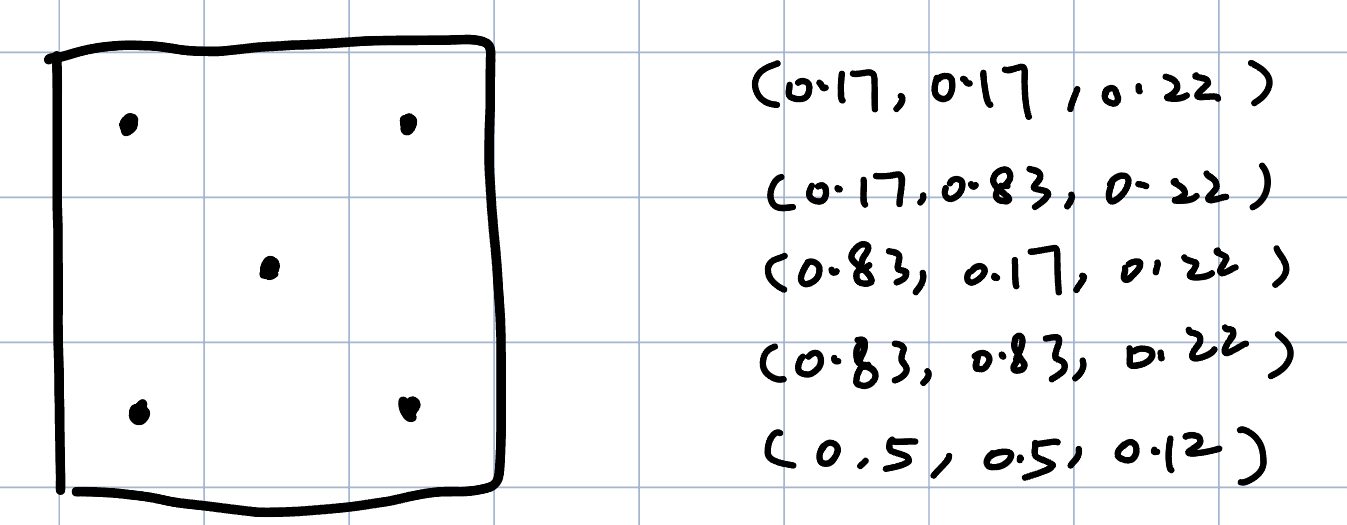 (0.17, 0.17, 0.22)
(0.17, 0.83, 0.22)
(0.83, 0.17, 0.22)
(0.83, 0.83, 0.22)
(0.5, 0.5, 0.12)